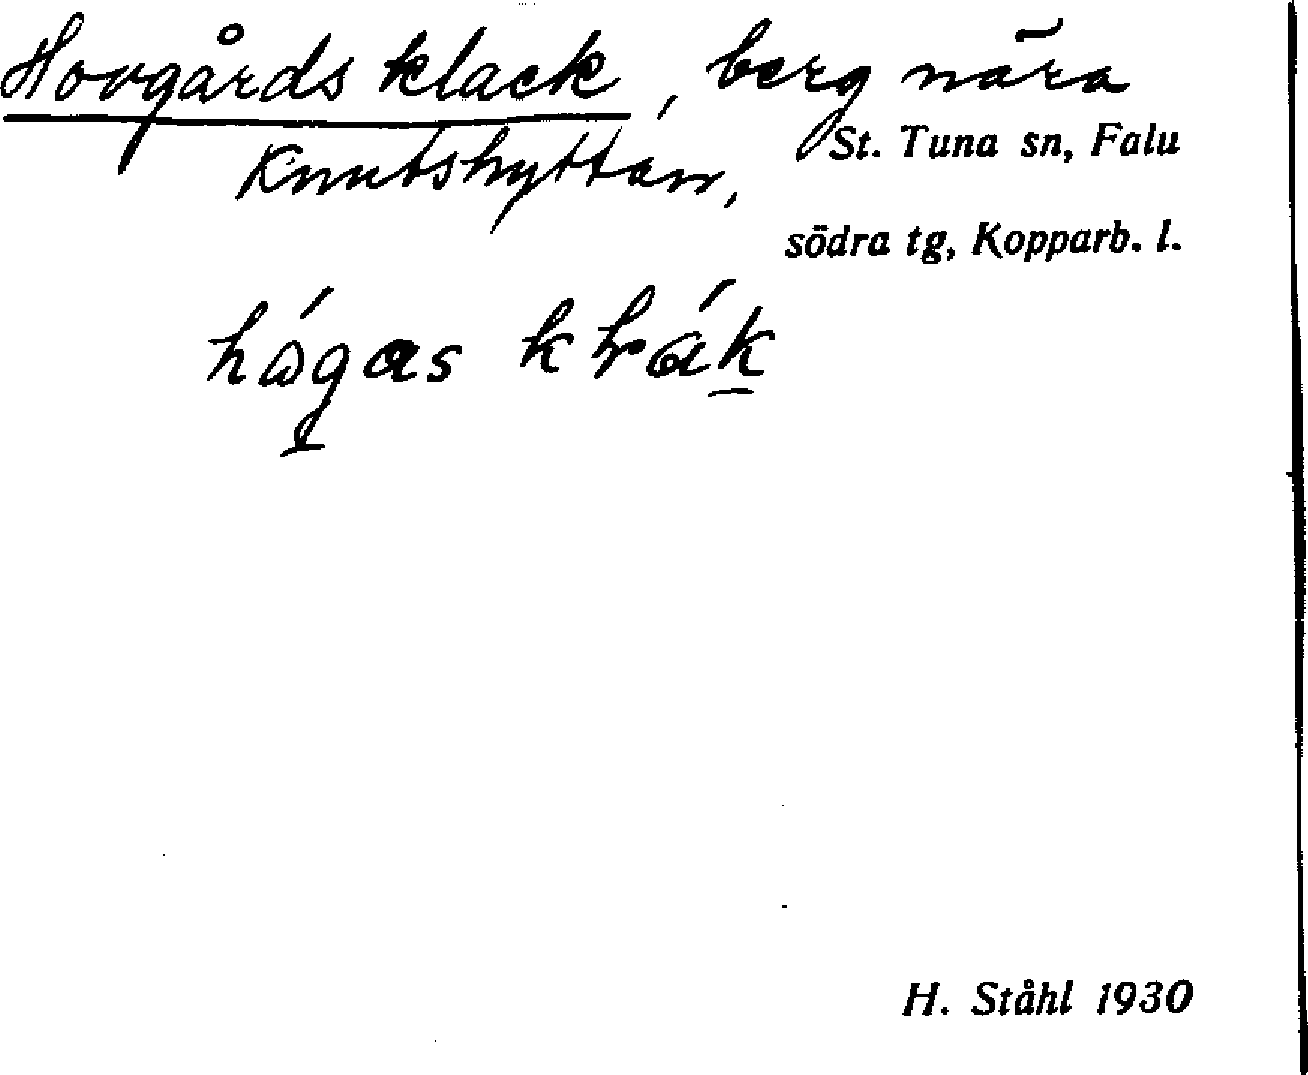 Hovgårds klack, berg nära
St. Tuna sn, Falu
Knutshyttan,
södra tg, Kopparb. l.
H. Ståhl 1930